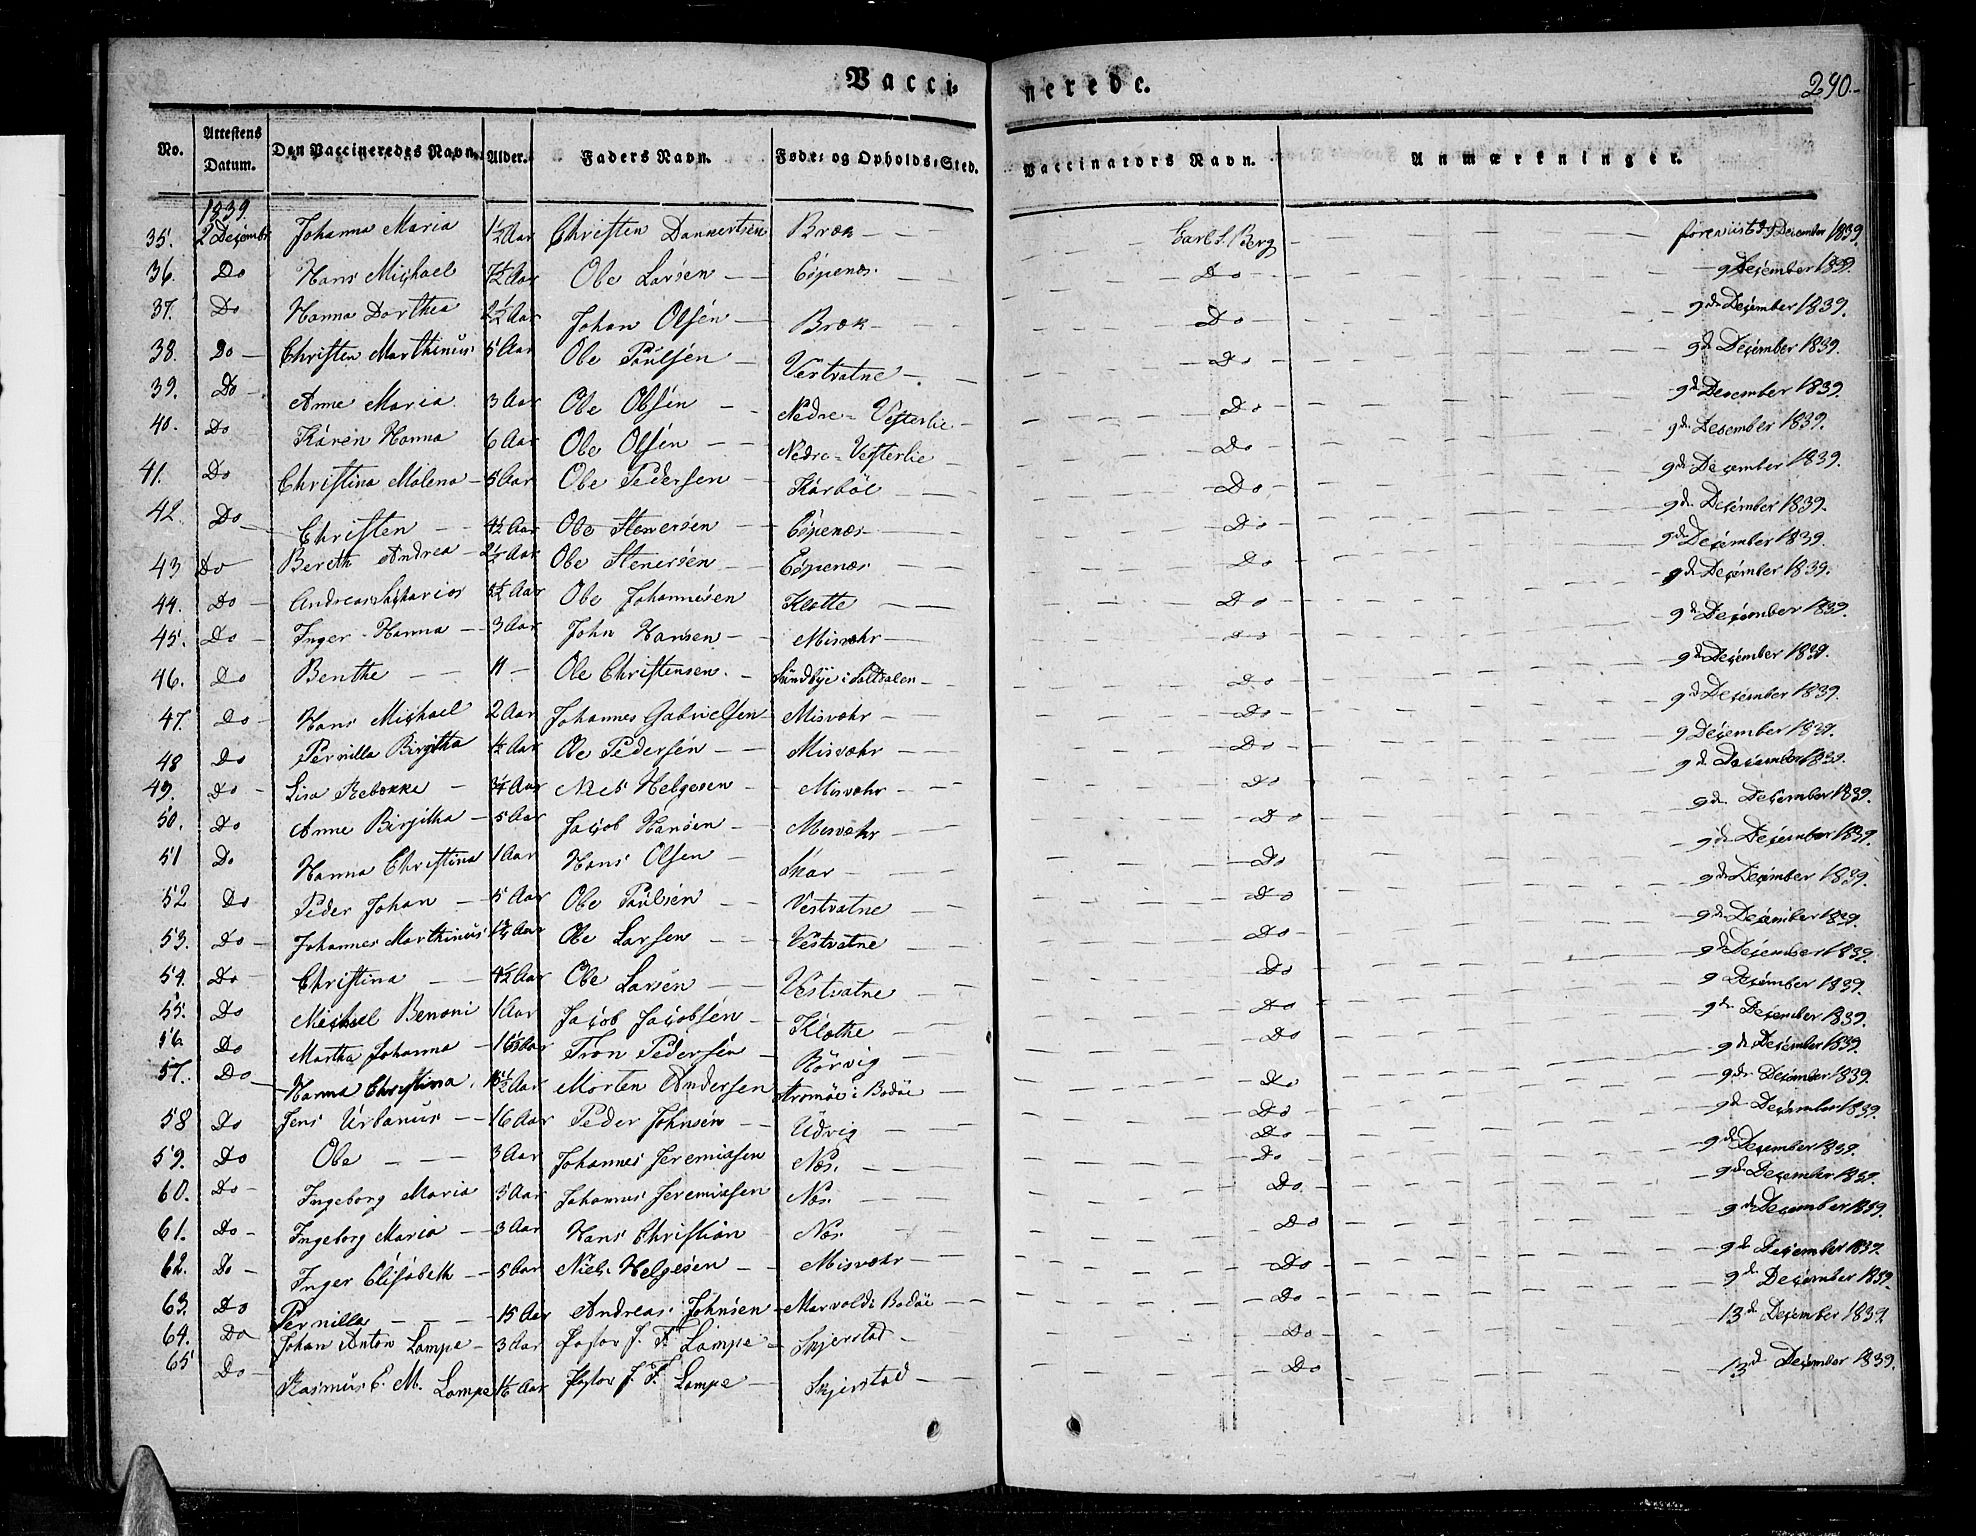 Vacci- nerede.
290.
No. Attestens Datum. Den Vaccineredes Navn. Alder. Faders Navn. Føde- og Opholds-Sted. Vaccinators Navn. Anmærkninger.
1839
35. 2 Decembr Johanna Maria 1½ Aar Christen Dannertsen Bræk Carl S. Berg foreviist 9 December 1839.
36. Do Hans Michael 7½ Aar Ole Larsen Espenæs Do 9 December 1839.
37. Do Hanna Dorthea 2½ Aar Johan Olsen Bræk Do 9de December 1839.
38. Do Christen Marthinus 5 Aar Ole Paulsen Vestvatne Do 9d December 1839.
39. Do Anne Maria 3 Aar Ole Olsen Nedre-Vesterlie Do 9d December 1839.
40. Do Karen Hanna 6 Aar Ole Olsen Nedre-Vesterlie Do 9d December 1839.
41. Do Christina Malena 5 Aar Ole Pedersen Karbøl Do 9d December 1839.
42. Do Christen 4½ Aar Ole Stenersen Espenæs Do 9d December 1839.
43 Do Bereth Andrea 2½ Aar Ole Stenersen Espenæs Do 9d December 1839.
44. Do Andreas Aar Ole Johannesen Kløtte Do 9d December 1839.
45. Do Inger Hanna 3 Aar John Hansen Misvæhr Do 9d December 1839.
46. Do Benthe 11 Ole Christensen Sundbye i Saltdalen Do 9d December 1839.
47. Do Hans Michael 2 Aar Johannes Gabrielsen Misvæhr Do 9d December 1839.
48 Do Pernilla Birgitha ½ Aar Ole Pedersen Misvæhr Do 9 December 1839.
49. Do Lisa Rebekke ¾ Aar Niels Helgesen Misvæhr Do 9d December 1839.
50. Do Anne Birgitha 5 Aar Jacob Hansen Misvæhr Do 9d December 1839.
51 Do Hanna Christina 1 Aar Hans Olsen Skar Do 9d December 1839.
52 Do Peder Johan 5 Aar Ole Paulsen Vestvatne Do 9d December 1839.
53. Do Johannes Marthinus Aar Ole Larsen Vestvatne Do 9d December 1839.
54. Do Christina 4½ Aar Ole Larsen Vestvatne Do 9d December 1839.
55. Do Michael Benoni 1 Aar Jacob Jacobsen Kløthe Do 9 December 1839.
56 Do Martha Johanna Aar Tron Pedersen Rørvig Do 9d December 1839.
57. Do Hanna Christina Aar Morten Andersen Strømøe i Bodøe Do 9d December 1839.
58 Do Jens Urbanus 16 Aar Peder Johnsen Udvig Do 9d December 1839.
59. Do Ole 3 Aar Johannes Jeremiasen Næs Do 9d December 1839.
60. Do Ingeborg Maria 5 Aar Johannes Jeremiasen Næs Do 9d December 1839.
61. Do Ingeborg Maria 3 Aar Hans Christian Næs Do 9d December 1839.
62. Do Inger Elisabeth 5 Aar Niels Helgesen Misvæhr Do 9d December 1839.
63. Do Pernilla 15 Aar Andreas Johnsen Bodøe Do 9d December 1839.
64. Do Johan Anton Lampe 3 Aar Pastor J. F. Lampe Skjerstad Do 13d December 1839.
65 Do Rasmus E. M. Lampe Aar Pastor J. F. Lampe Skjerstad Do 13d December 1839.